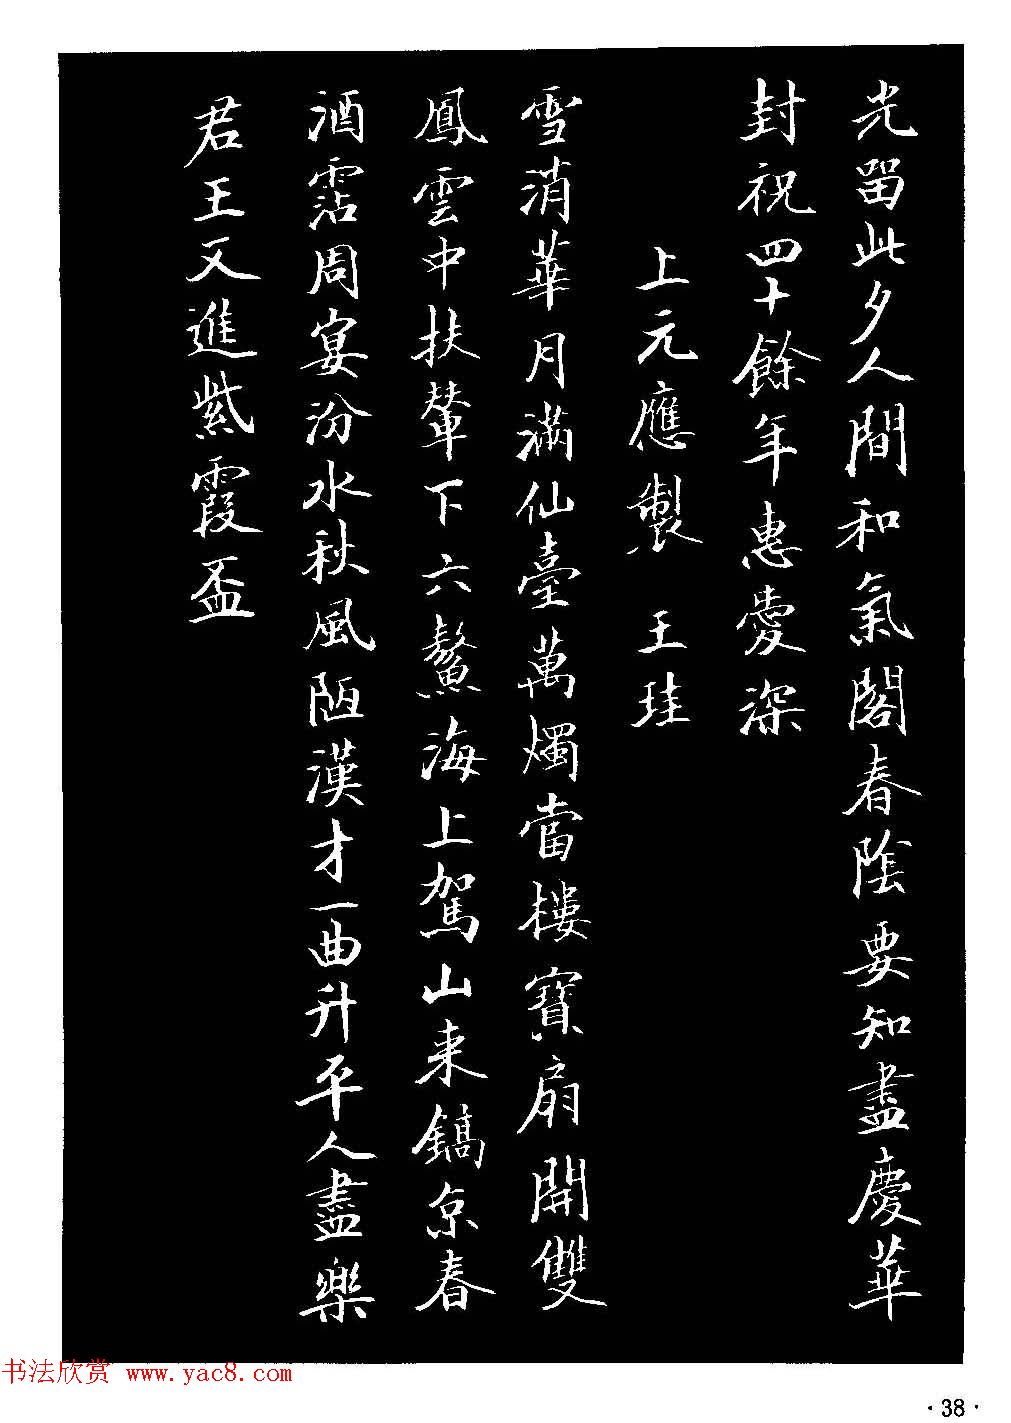 光留此夕人間和氣閣春陰要知盡慶華
封祝四十餘年惠愛深
上元應製 王珪
雪消華月滿仙臺萬燭當樓寶扇開雙
鳳雲中扶輦下六鰲海上駕山來鎬京春
酒霑周宴汾水秋風陋漢才一曲升平人盡樂
君王又進紫霞盃
书法欣赏 www.yac8.com
·38·